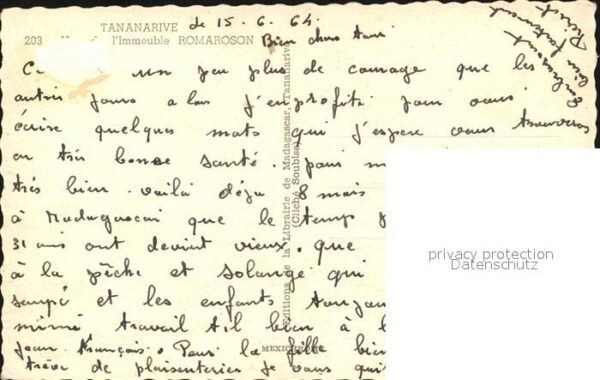 TANANARIVE
le 15. 6. 64.
203 l'Immeuble ROMAROSON
Bien chers tous
un peu plus de courage que les
autres jours alors j'en profite pour vous
écrire quelques mots qui j'espère vous trouveras
en très bonne santé. pour m
très bien. voilà déjà 8 mais
à Madagascar que le temps
31 ans ont devint vieux. que
à la pêche et Solange qui
soupé et les enfants toujou
mimi travail til bien à l
Jean François. Pour la fille bien
trève de plaisenteries je vous qui
Embrassant
bien fortement
Editions de la Librairie de Madagascar, Tananarive
(Cliché Soubise)
MEXICHROME
privacy protection
Datenschutz